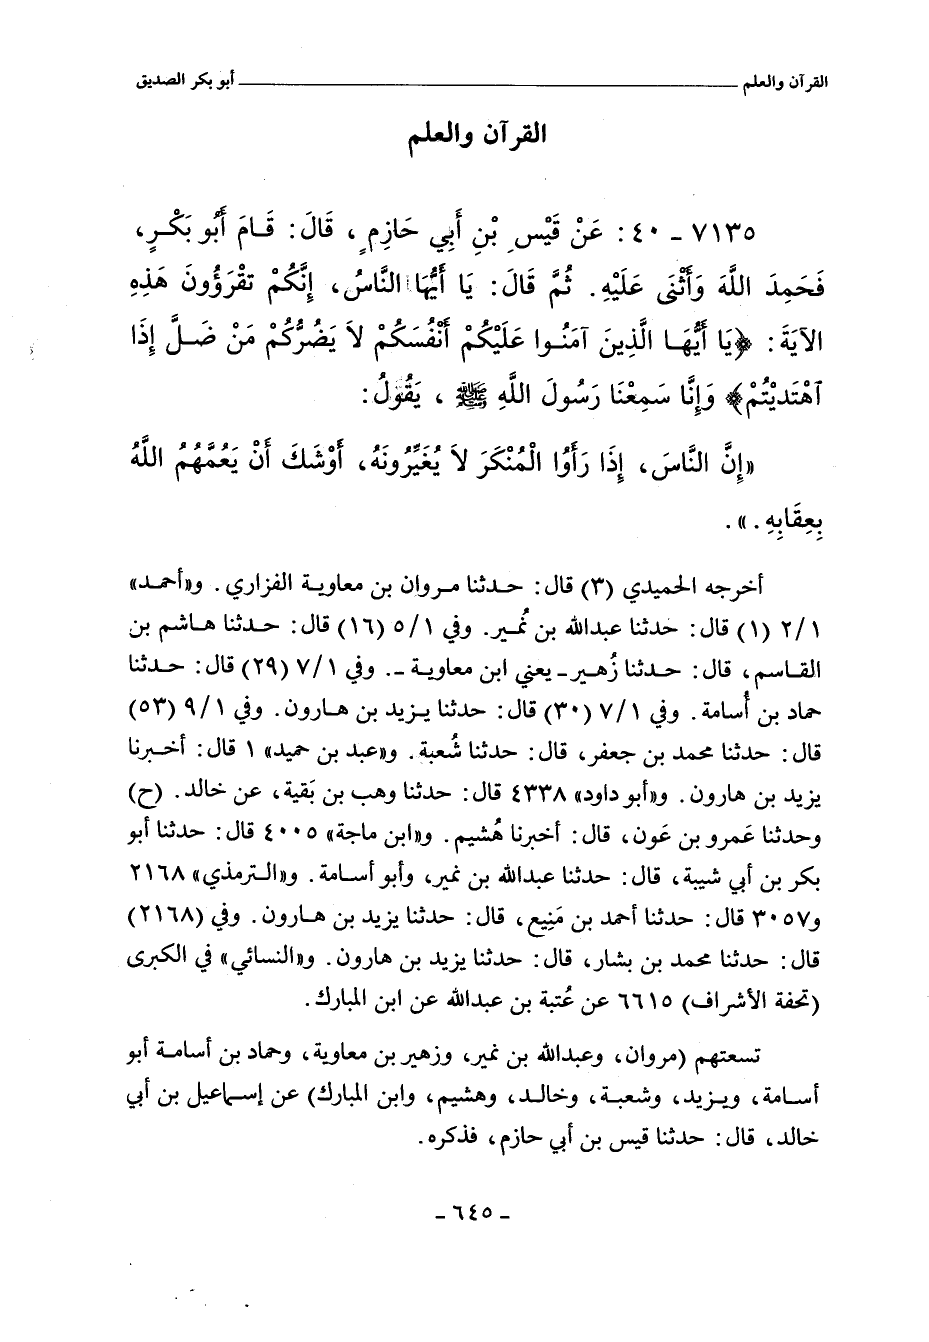 القرآن والعلم ــــــــــــــــ أبو بكر الصديق
القرآن والعلم
٧١٣٥ ـ ٤٠: عَنْ قَيْسِ بْنِ أَبِي حَازِمٍ، قَالَ: قَامَ أَبُو بَكْرٍ،
فَحَمِدَ اللَّهَ وَأَثْنَى عَلَيْهِ. ثُمَّ قَالَ: يَا أَيُّهَا النَّاسُ، إِنَّكُمْ تَقْرَؤُونَ هَذِهِ
الآيَةَ: ﴿يَا أَيُّهَا الَّذِينَ آمَنُوا عَلَيْكُمْ أَنْفُسَكُمْ لاَ يَضُرُّكُمْ مَنْ ضَلَّ إِذَا
ٱهْتَدَيْتُمْ﴾ وَإِنَّا سَمِعْنَا رَسُولَ اللَّهِ ﷺ، يَقُولُ:
«إِنَّ النَّاسَ، إِذَا رَأَوُا الْمُنْكَرَ لاَ يُغَيِّرُونَهُ، أَوْشَكَ أَنْ يَعُمَّهُمُ اللَّهُ
بِعِقَابِهِ.».
أخرجه الحميدي (٣) قال: حدثنا مروان بن معاوية الفزاري. و«أحمد»
٢/١ (١) قال: حدثنا عبدالله بن نُمير. وفي ٥/١ (١٦) قال: حدثنا هاشم بن
القاسم، قال: حدثنا زُهير ـ يعني ابن معاوية ـ. وفي ٧/١ (٢٩) قال: حدثنا
حماد بن أُسامة. وفي ٧/١ (٣٠) قال: حدثنا يزيد بن هارون. وفي ٩/١ (٥٣)
قال: حدثنا محمد بن جعفر، قال: حدثنا شُعبة. و«عبد بن حميد» ١ قال: أخبرنا
يزيد بن هارون. و«أبو داود» ٤٣٣٨ قال: حدثنا وهب بن بَقية، عن خالد. (ح)
وحدثنا عَمرو بن عَون، قال: أخبرنا هُشيم. و«ابن ماجة» ٤٠٠٥ قال: حدثنا أبو
بكر بن أبي شيبة، قال: حدثنا عبدالله بن نمير، وأبو أسامة. و«الترمذي» ٢١٦٨
و٣٠٥٧ قال: حدثنا أحمد بن مَنِيع، قال: حدثنا يزيد بن هارون. وفي (٢١٦٨)
قال: حدثنا محمد بن بشار، قال: حدثنا يزيد بن هارون. و«النسائي» في الكبرى
(تحفة الأشراف) ٦٦١٥ عن عُتبة بن عبدالله عن ابن المبارك.
تسعتهم (مروان، وعبدالله بن نمير، وزهير بن معاوية، وحماد بن أسامة أبو
أسامة، ويزيد، وشعبة، وخالد، وهشيم، وابن المبارك) عن إسماعيل بن أبي
خالد، قال: حدثنا قيس بن أبي حازم، فذكره.
ـ ٦٤٥ ـ